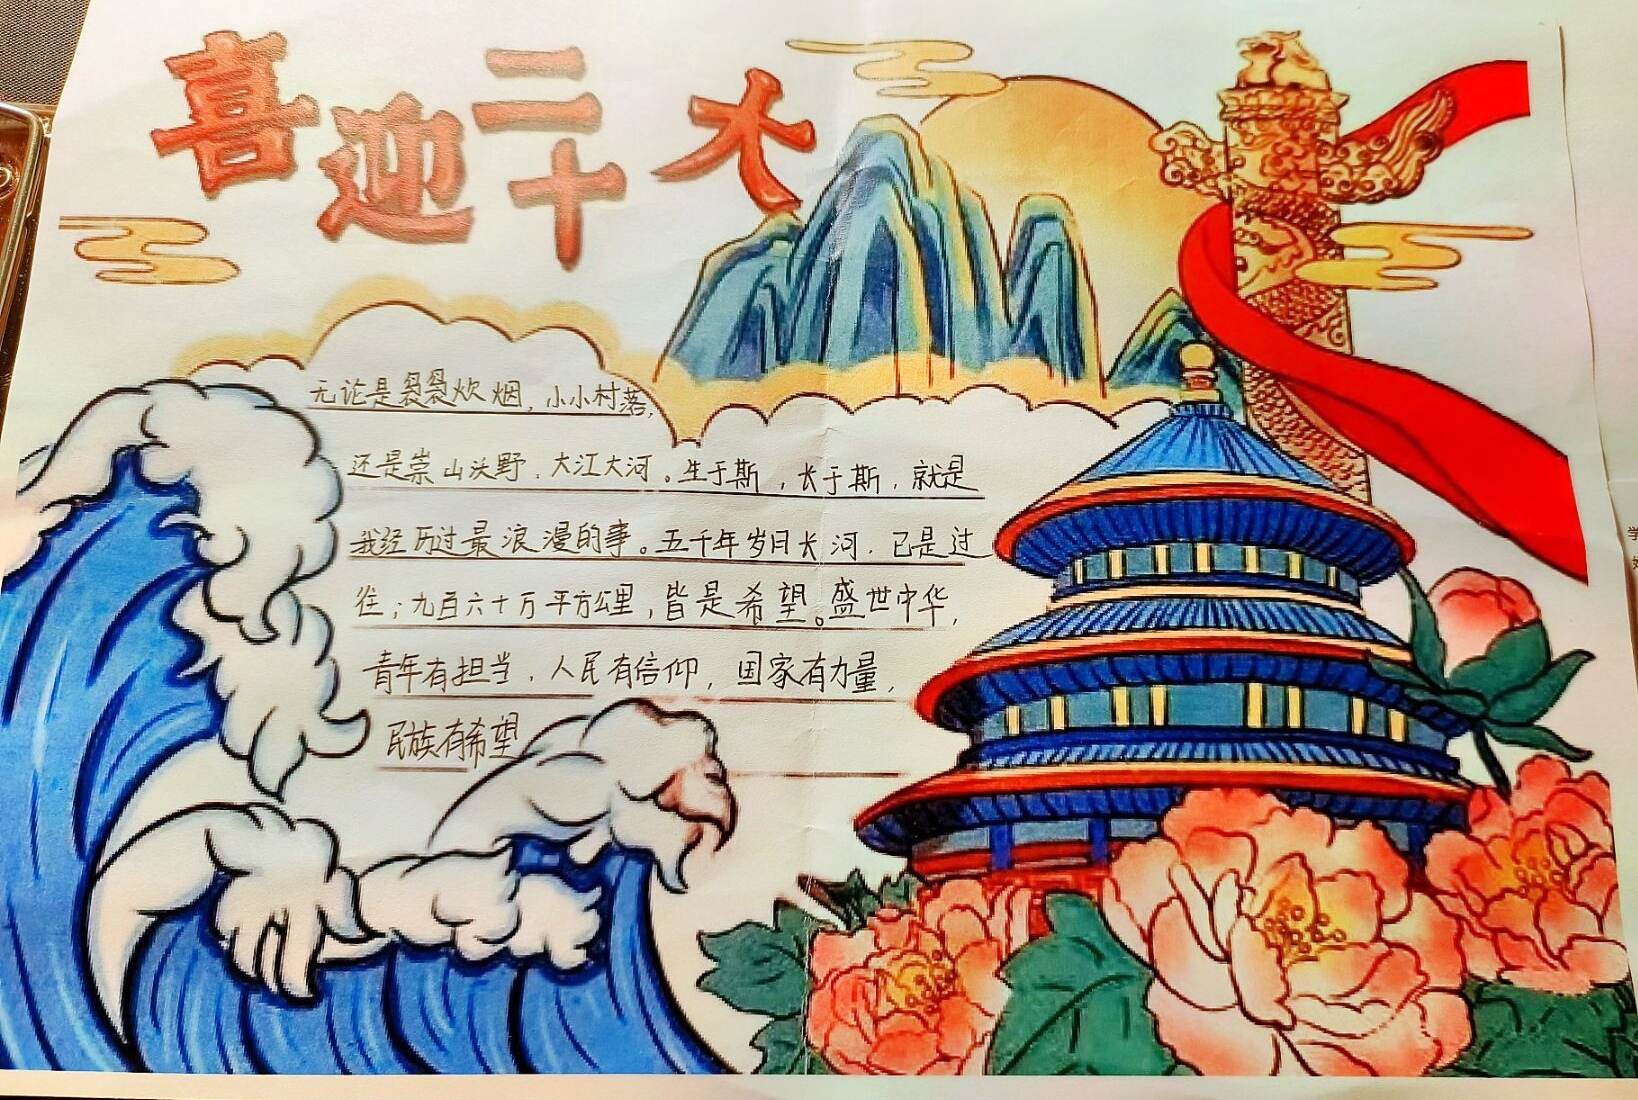 喜迎二十大
无论是裂裂炊烟，小小村落，
还是崇山沃野，大江大河。生于斯，长于斯，就是
我经历过最浪漫的事。五千年岁月长河，已是过
往；九百六十万平方公里，皆是希望。盛世中华，
青年有担当，人民有信仰，国家有力量，
民族有希望